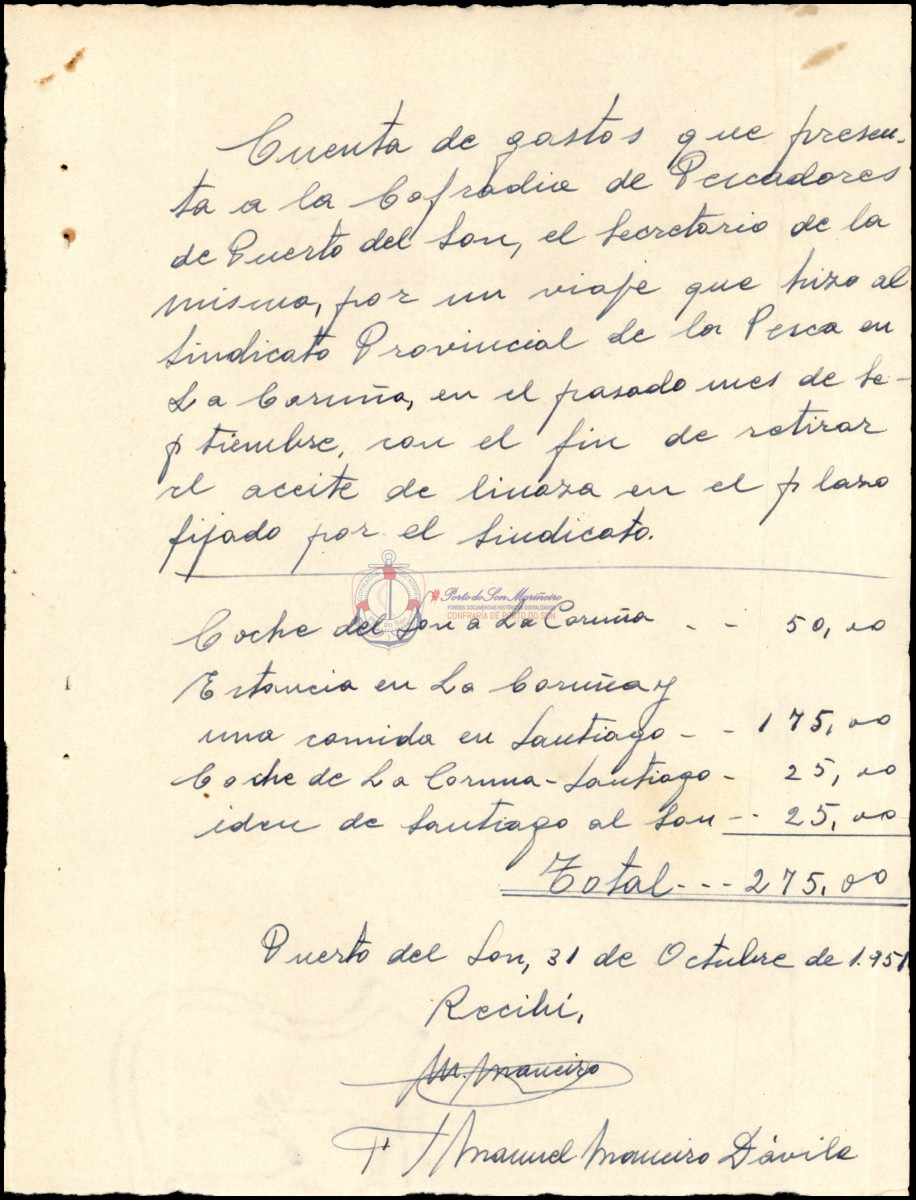 Cuenta de gastos que presen-
ta a la Cofradia de Pescadores
de Puerto del Son, el Secretario de la
misma, por un viaje que hizo al
Sindicato Provincial de la Pesca en
La Coruña, en el pasado mes de Se-
ptiembre, con el fin de retirar
el aceite de linaza en el plazo
fijado por el Sindicato.
Porto do Son Mariñeiro
FONDOS DOCUMENTAIS HISTÓRICOS DIXITALIZADOS
CONFRARÍA DE PORTO DO SON
Coche del Son a La Coruña - - 50,00
Estancia en La Coruña y
una comida en Santiago - - 175,00
Coche de La Coruna-Santiago - 25,00
idem de Santiago al Son -- 25,00
Total --- 275,00
Puerto del Son, 31 de Octubre de 1.951
Recibí,
M. Maneiro
F/ Manuel Maneiro Dávila